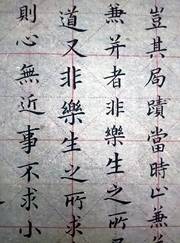 豈其局蹟當時止兼
兼并者非樂生之所
道又非樂生之所求
則心無近事不求小